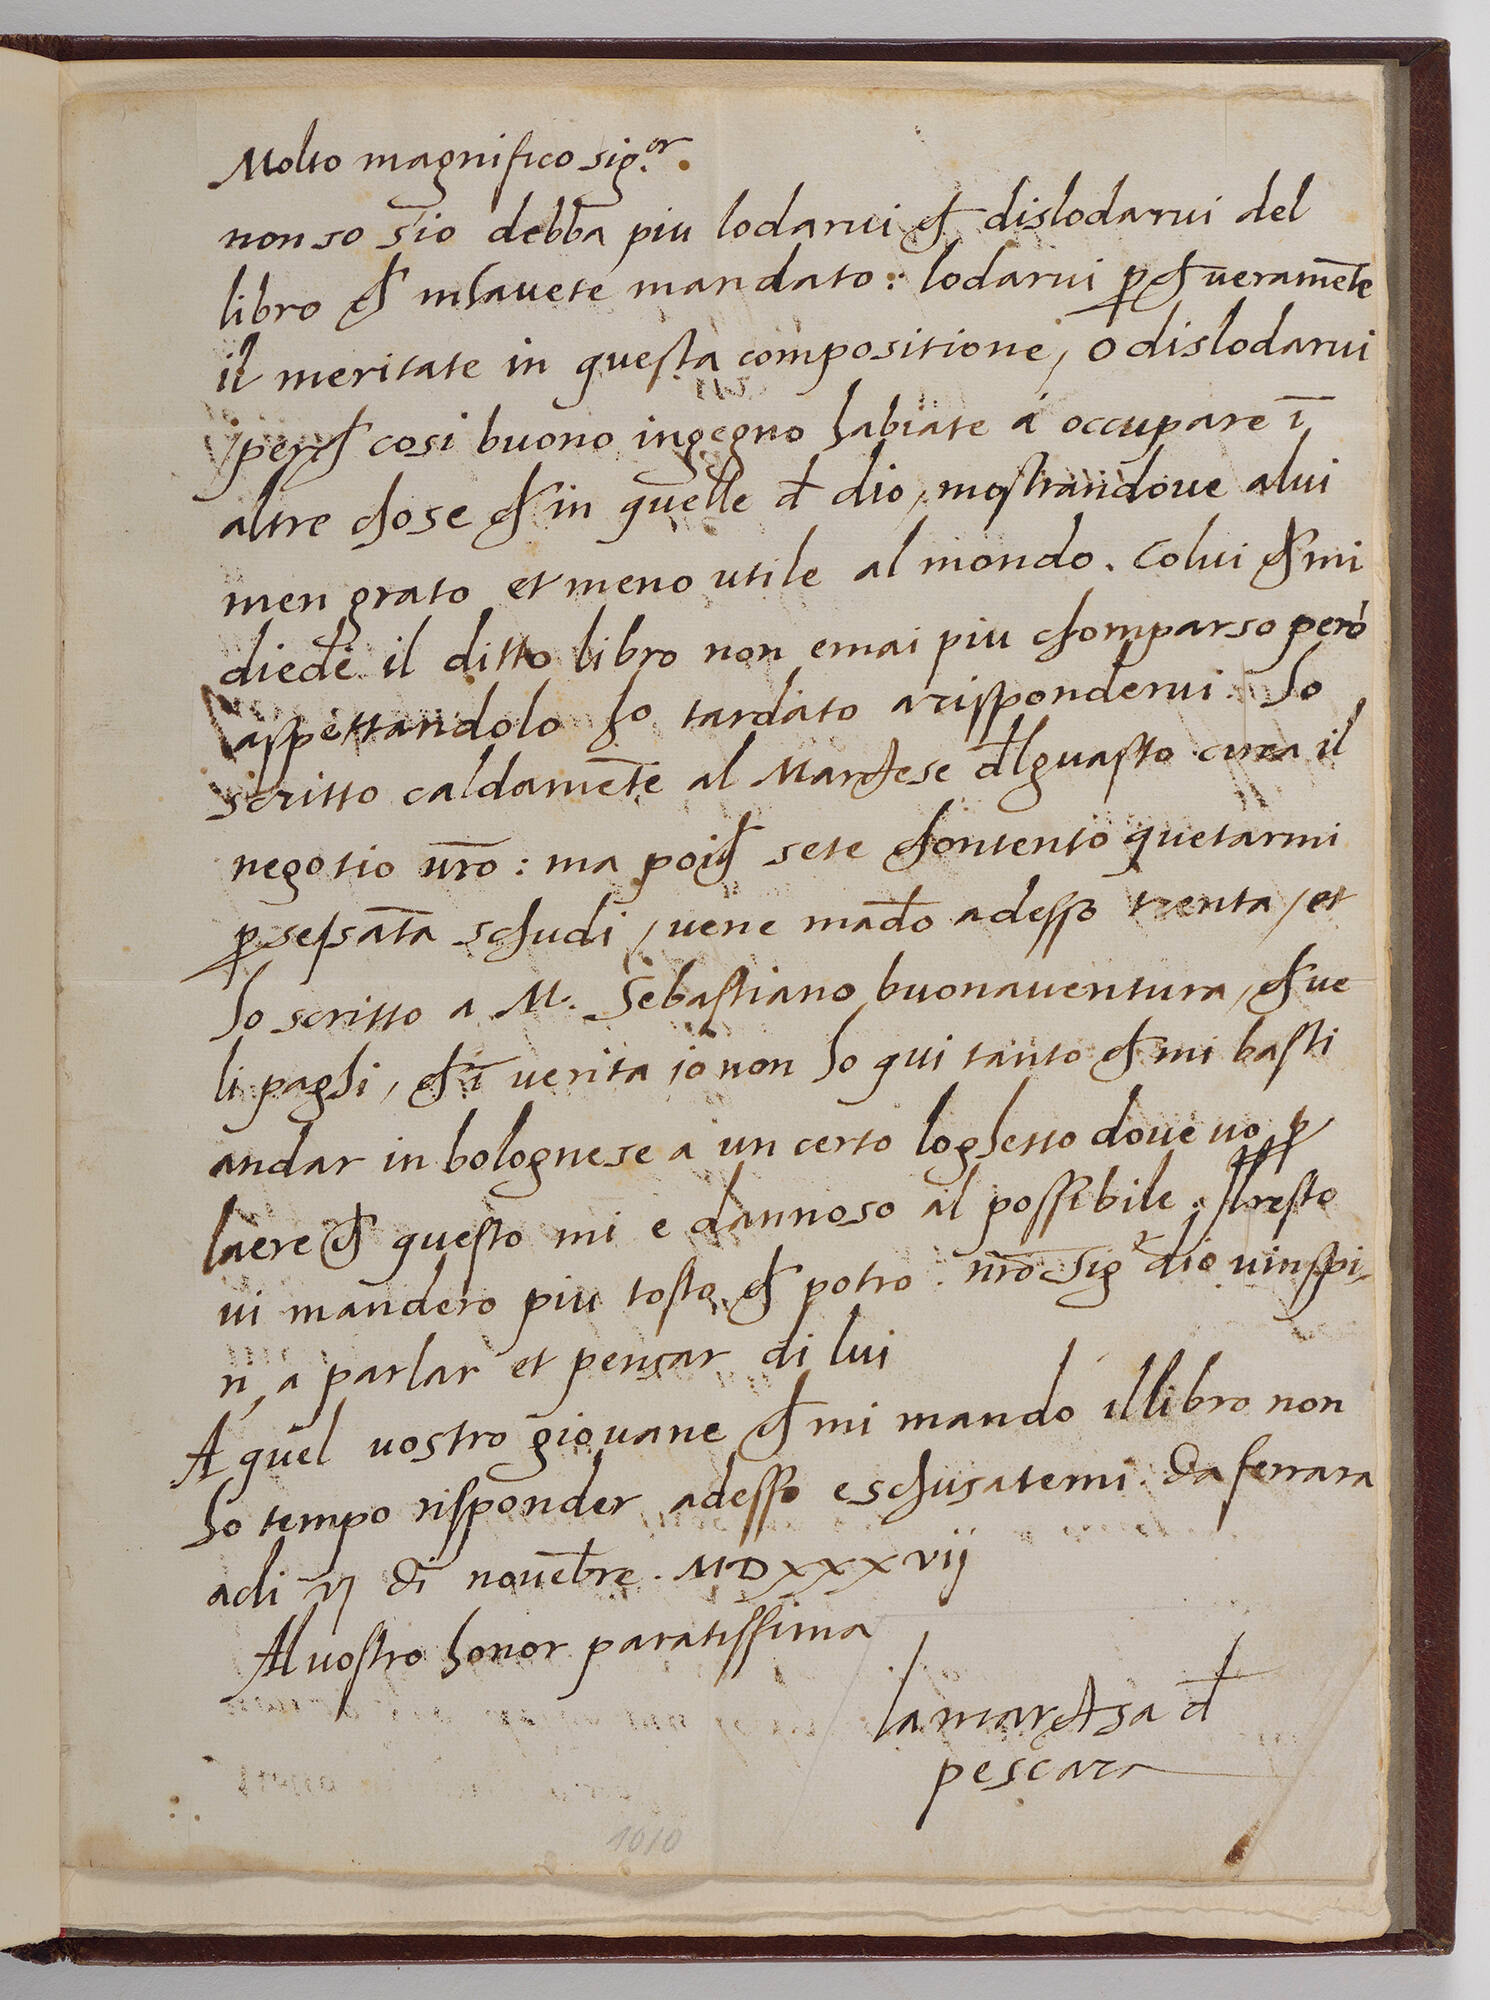 Molto magnifico sig.or
non so sio debba piu lodarui ch dislodarui del
libro ch mhauete mandato: lodarui p ch ueramẽte
il meritate in questa compositione, o dislodarui
perch cosi buono ingegno habiate à occupare ĩ
altre chose ch in quelle d dio, mostrandoue a lui
men grato et meno utile al mondo. Colui ch mi
diede il ditto libro non e mai piu chomparso però
aspettandolo ho tardato a risponderui. ho
scritto caldamẽte al Marchese dl guasto circa il
negotio ur̃o: ma poich sete chontento quetarmi
p sessãta schudi, uene mãdo adesso trenta, et
ho scritto a M. Sebastiano buonauentura, ch ue
li paghi, ch ĩ uerita io non ho qui tanto ch mi basti
andar in bolognese a un certo loghetto doue uo p
laere ch questo mi e dannoso al possibile. Il resto
ui mandero piu tosto ch potro. nr̃o Sig.r dio uinspi-
ri, a parlar et pensar di lui
A quel uostro giouane ch mi mando il libro non
ho tempo risponder adesso e schusatemi. Da ferrara
adi vj di nouẽbre. MDXXXvij
Al uostro honor paratissima
la marchsa d
pescara
1010